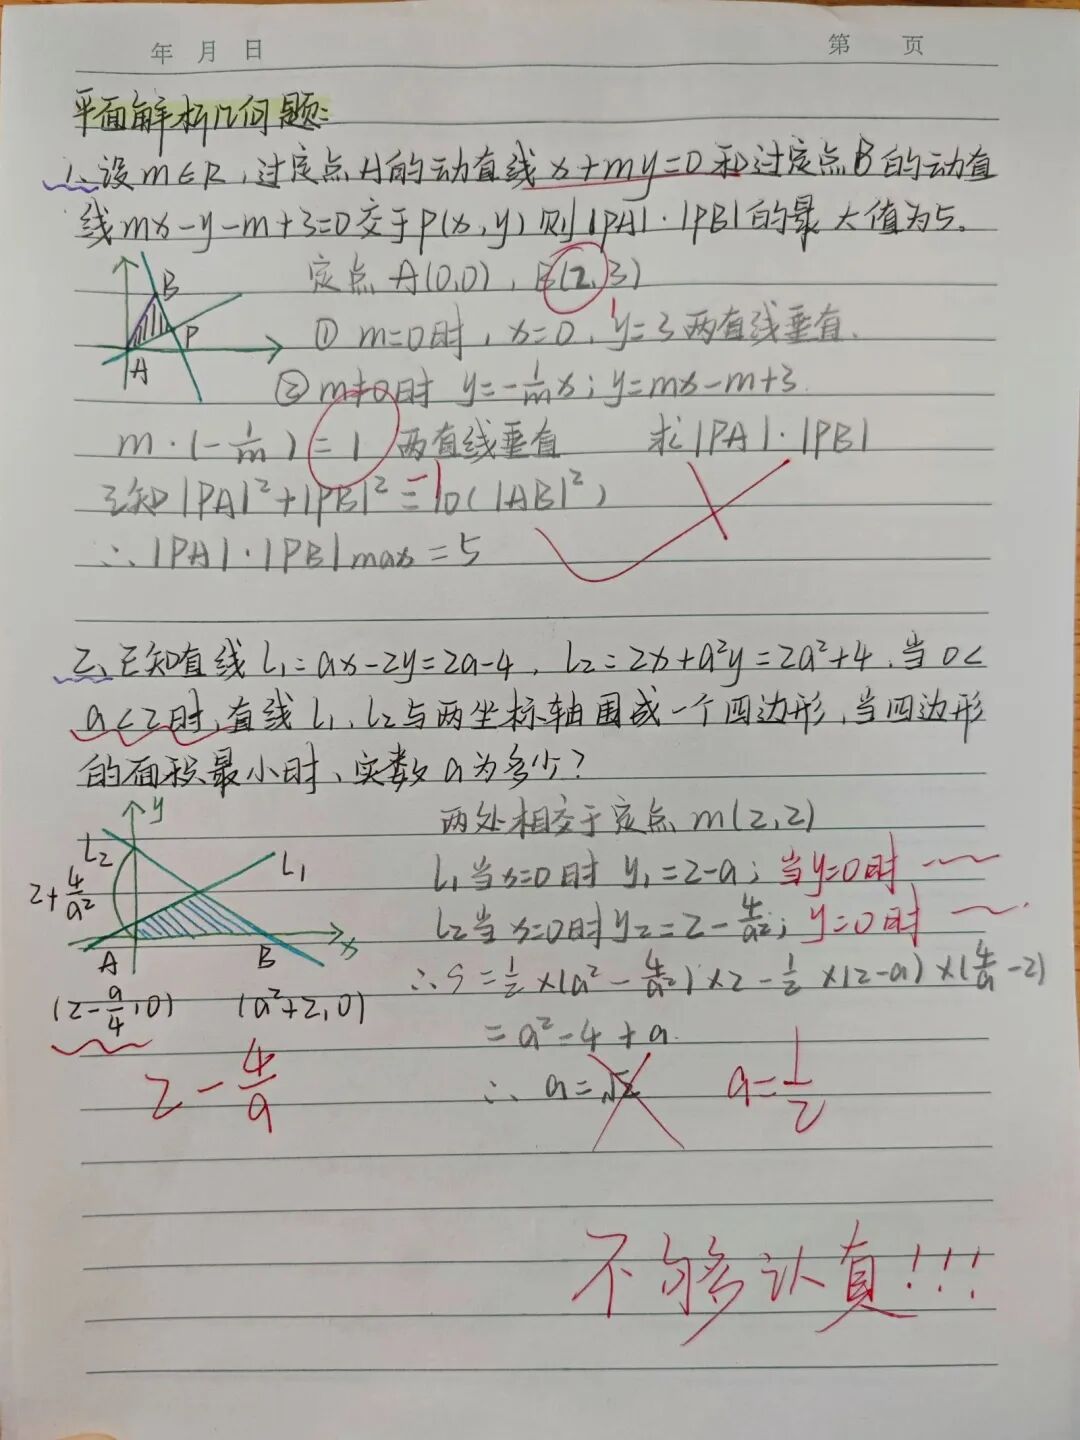 年 月 日
第 页
平面解析几何题:
1、设m∈R,过定点A的动直线x+my=0和过定点B的动直
线mx-y-m+3=0交于P(x,y)则|PA|·|PB|的最大值为5。
定点A(0,0),B(2,3)
1
B
P
A
① m=0时,x=0,y=3两直线垂直.
②m≠0时 y=-1/m x;y=mx-m+3.
m·(-1/m)=1 两直线垂直 求|PA|·|PB|
-1
已知|PA|²+|PB|²=10(|AB|²)
∴|PA|·|PB|max=5
二、已知直线L1=ax-2y=2a-4,L2=2x+a²y=2a²+4.当0<
a<2时,直线L1、L2与两坐标轴围成一个四边形,当四边形
的面积最小时、实数a为多少?
两处相交于定点m(2,2)
y
L2
L1
2+4/a²
x
A
B
L1当x=0时 y1=2-a; 当y=0时
L2当x=0时y2=2-4/a²; y=0时
(2-a/4,0) (a²+2,0)
∴S=1/2×(a²-4/a²)×2-1/2×(2-a)×(4/a-2)
=a²-4+a.
2-4/a
∴ a=√2 a=1/2
不够认真!!!